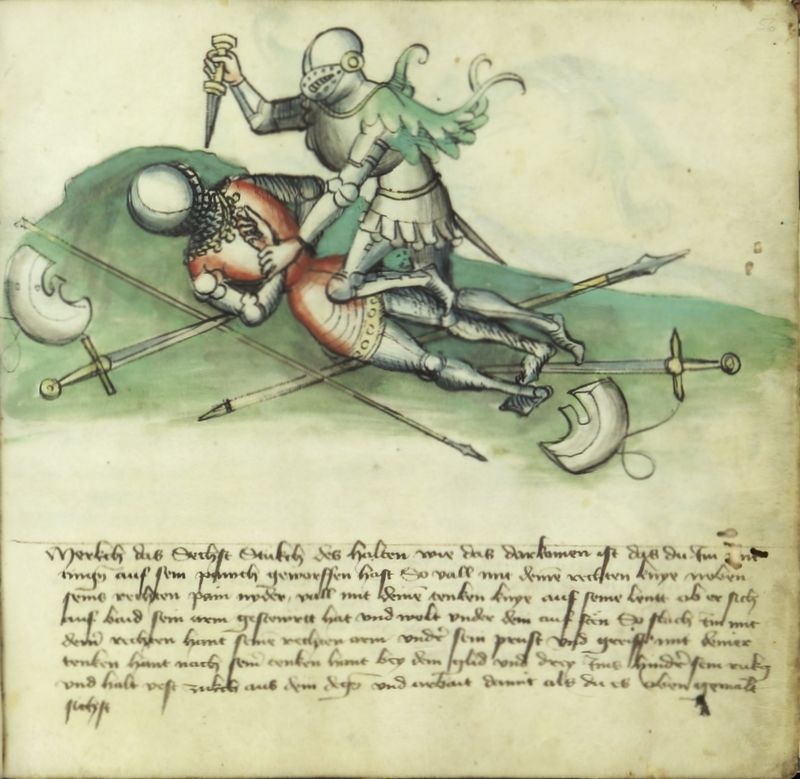 56
Merkch das Sechst Stukch des halten wie das darkomen ist das du im Im
ringn auf sein pawch geworffen hast So vall mit deinē rechten knye neben
seins rechten pain nyder vall mit deinē tenken knye auf seine lentt ob er sich
auf baid sein arm gestewrtt hat vnd wolt vnder dem auf sten So slach im mit
deinē rechten hant seinē rechten arm vnder sein prust vnd greiff mit deiner
tenken hant nach seinē tenken hant bey dem glid vnd drey hinder sein rukg
vnd halt vest zukch aus dein degē vnd arbait damit als du es oben gemalt
sichst